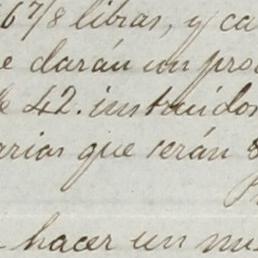 67/8 libras, y ca
e darán un pro
e 42. instruidos
arias que serán
hacer un nu